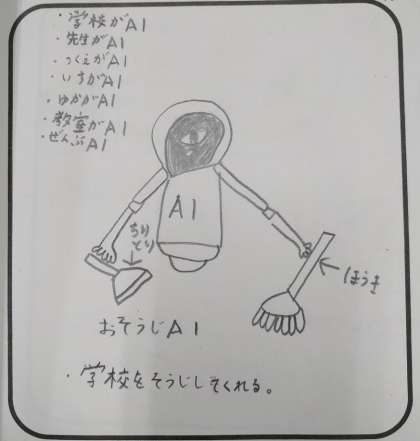 ・学校がAI
・先生がAI
・つくえがAI
・いすがAI
・ゆかがAI
・教室がAI
・ぜんぶAI
AI
ちり
とり
ほうき
おそうじAI
・学校をそうじしてくれる。